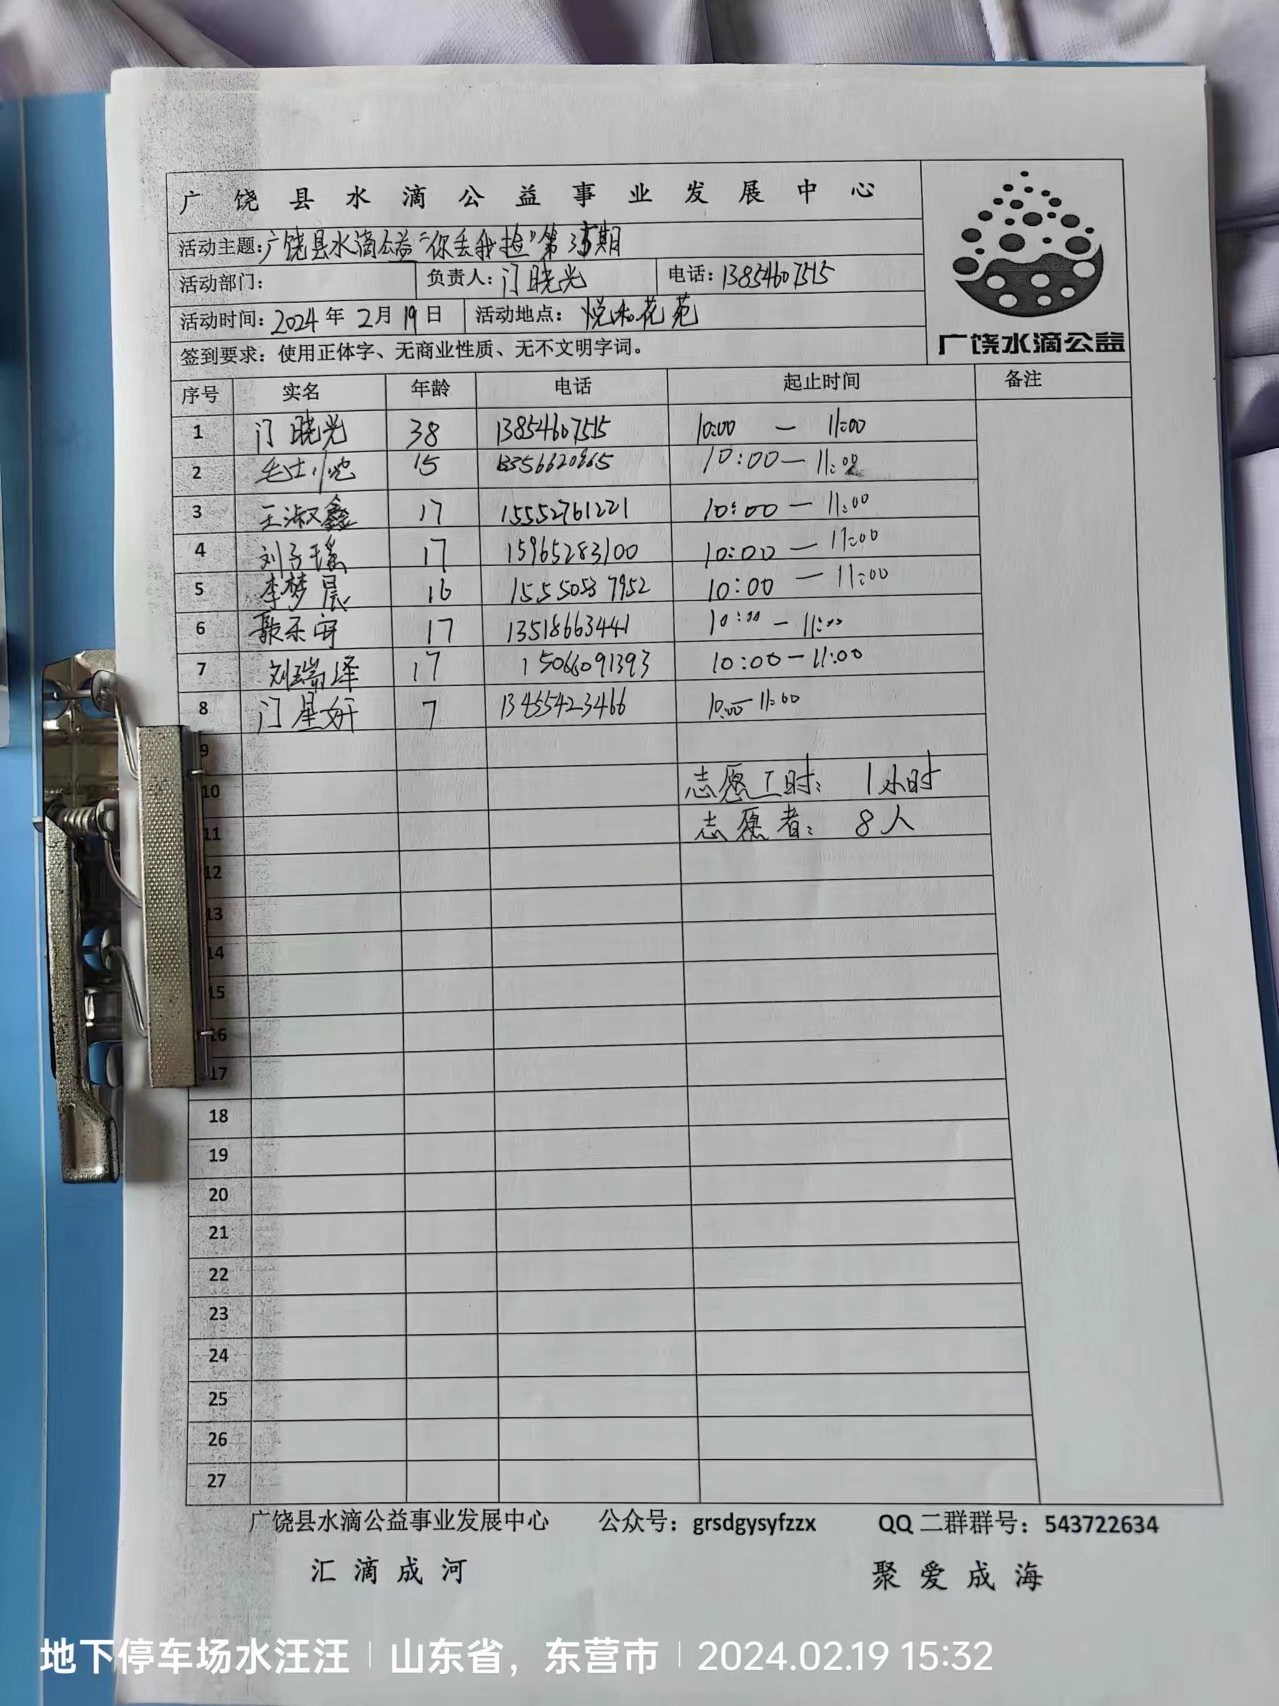 广饶县水滴公益事业发展中心
活动主题:广饶县水滴公益“你丢我捡”第 期
活动部门: 负责人:门晓光 电话:13854607515
活动时间:2024年2月19日 活动地点: 悦和花苑
签到要求:使用正体字、无商业性质、无不文明字词。
广饶水滴公益
序号 实名 年龄 电话 起止时间 备注
1 门晓光 38 13854607515 10:00 — 11:00
2 15 10:00—11:00
3 王淑鑫 17 15552761221 10:00—11:00
4 刘子瑶 17 15965283100 10:00—11:00
5 李梦晨 16 15550537952 10:00—11:00
6 17 13518663441 10:00-11:00
7 刘瑞泽 17 15066091393 10:00-11:00
8 门星妍 7 13465423466 10:00-11:00
9
10 志愿工时: 1小时
11 志愿者: 8人
12
13
14
15
16
17
18
19
20
21
22
23
24
25
26
27
广饶县水滴公益事业发展中心 公众号:grsdgysyfzzx QQ二群群号:543722634
汇滴成河 聚爱成海
地下停车场水汪汪 | 山东省,东营市 | 2024.02.19 15:32